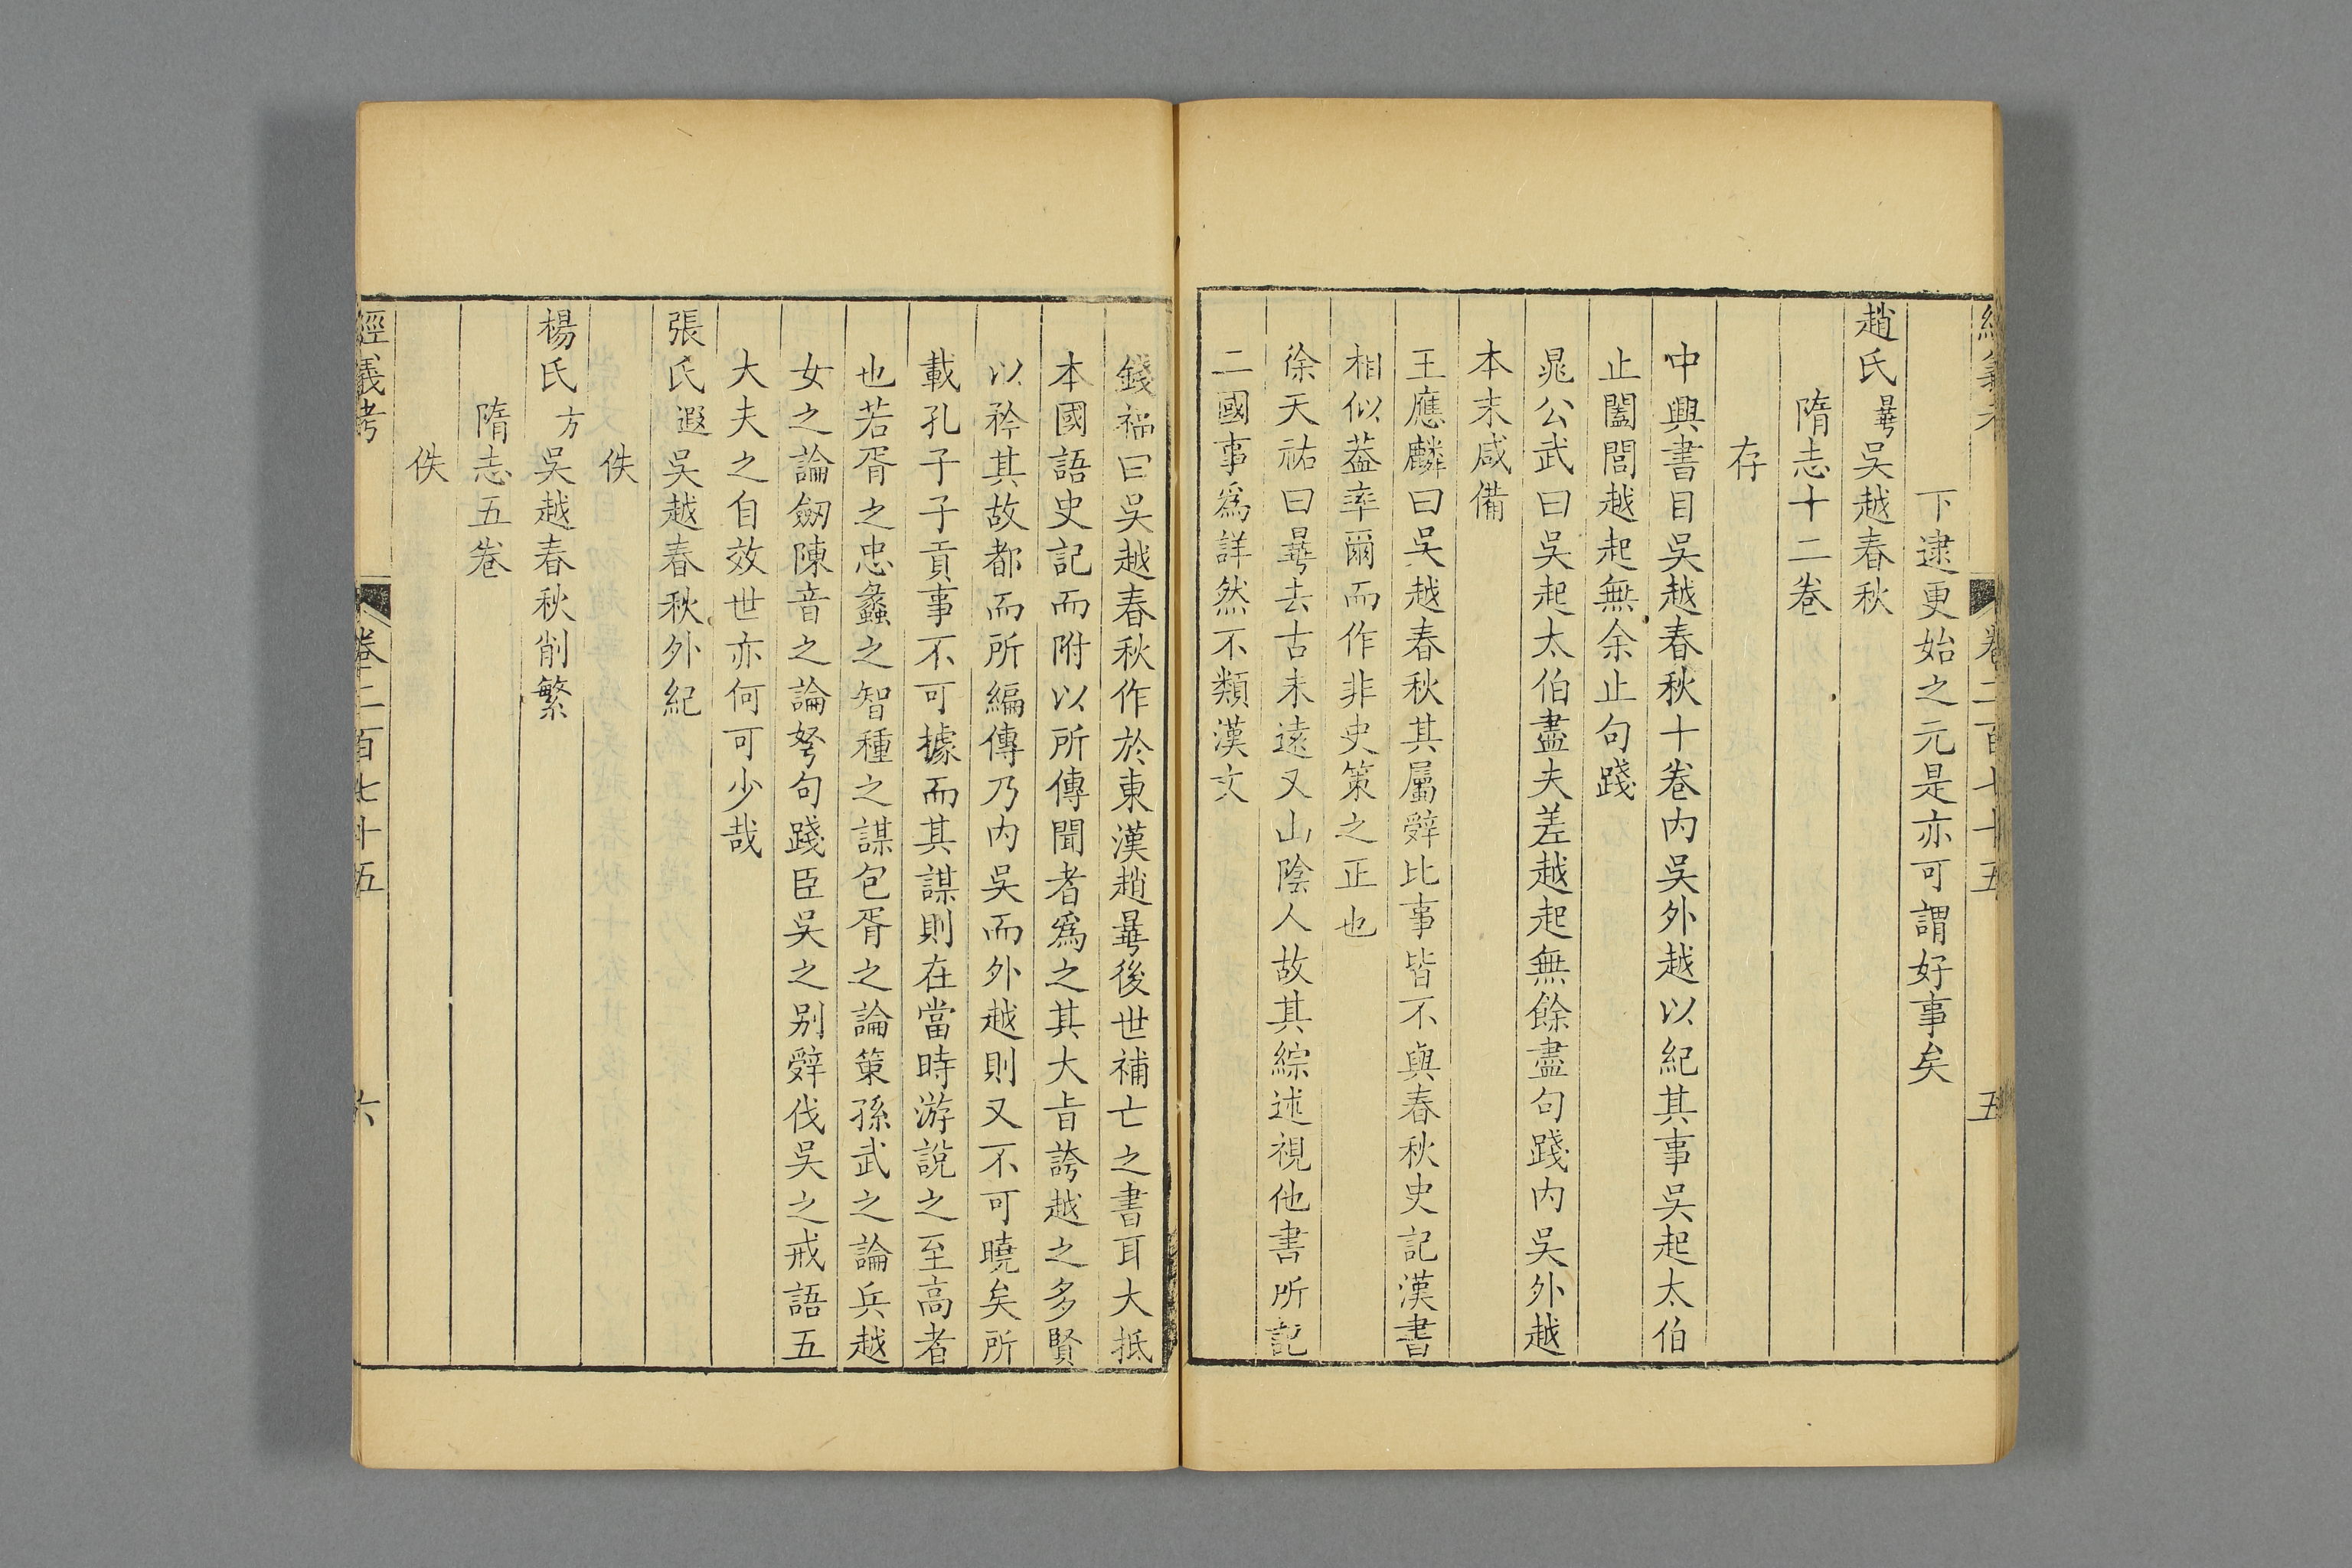 經義考 卷二百七十五 五
下逮更始之元是亦可謂好事矣
趙氏曄吳越春秋
隋志十二卷
存
中興書目吳越春秋十卷內吳外越以紀其事吳起太伯
止闔閭越起無余止句踐
晁公武曰吳起太伯盡夫差越起無餘盡句踐內吳外越
本末咸備
王應麟曰吳越春秋其屬辭比事皆不與春秋史記漢書
相似葢率爾而作非史策之正也
徐天祐曰曄去古未遠又山陰人故其綜述視他書所記
二國事爲詳然不類漢文
錢福曰吳越春秋作於東漢趙曄後世補亡之書耳大抵
本國語史記而附以所傳聞者爲之其大旨誇越之多賢
以矜其故都而所編傳乃內吳而外越則又不可曉矣所
載孔子子貢事不可據而其謀則在當時游說之至高者
也若胥之忠蠡之智種之謀包胥之論策孫武之論兵越
女之論劒陳音之論弩句踐臣吳之别辭伐吳之戒語五
大夫之自效世亦何可少哉
張氏遐吳越春秋外紀
佚
楊氏方吳越春秋削繁
隋志五卷
佚
經義考 卷二百七十五 六